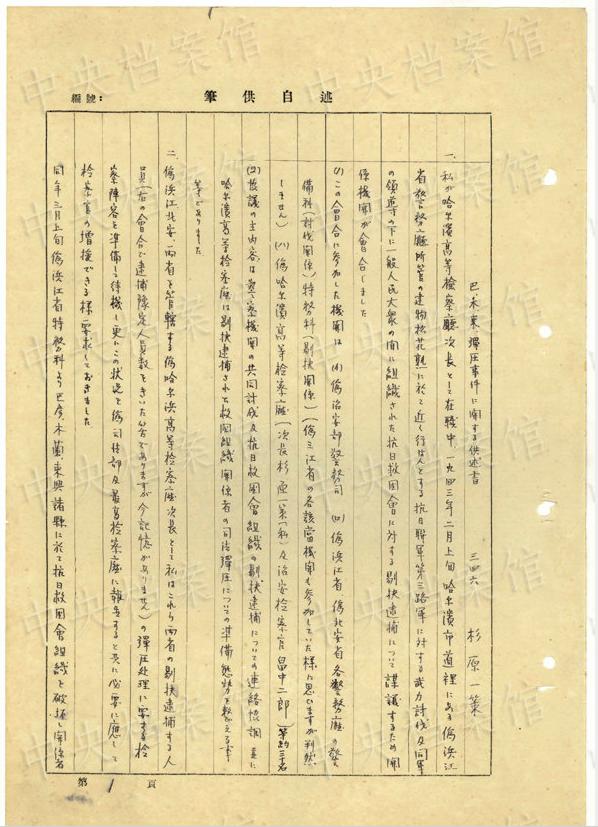 編號：
筆供自述
巴、木、東、彈圧事件に関する供述書　三四六　杉原一策
一、私が哈尔濱高等檢察廳次長として在職中、一九四三年二月上旬哈尔濱市道裡にある偽浜江
省警務廳所管の建物桃花熟に於て近く行はんとする抗日聯軍第三路軍に対する武力討伐及同軍
の領導の下に一般人民大衆の間に組織された抗日救国會に対する剔抉逮捕について謀議するため関
係機関が會合しました
(1) この會合に参加した機関は (イ) 偽治安部警務司 (ロ) 偽浜江省、偽北安省各警務廳の警
備科（討伐関係）特務科（剔抉関係）（偽三江省の各該当機関も参加していた様に思ひますが判然
しません）(ハ) 偽哈尔濱高等檢察廳（次長杉原一策（私）及治安檢察官畠中二郎）等約三名
(2) 謀議の主内容は警察機関の共同討伐及抗日救国會組織の剔抉逮捕についての連絡協調並に
哈尔濱高等檢察廳は剔抉逮捕された救国組織関係者の司法彈圧についての準備態勢を整える事
等でありました
二、偽浜江北安両省を管轄する偽哈尔浜高等檢察廳次長として私はこれら両省の剔抉逮捕する人
員（右の會合で逮捕豫定人員数をきいた筈でありますが今記憶がありません）の彈圧処理に要する檢
察陣容を準備して待機し更にこの状況を偽司法部及最高檢察廳に報告すると共に必要に應じて
檢察官の増援できる様要求しておきました
同年三月上旬偽浜江省特務科より巴彦、木蘭、東興諸縣に於て抗日救国會組織を破壊し関係者
第1頁
中央档案馆
中央档案馆
中央档案馆
中央档案馆